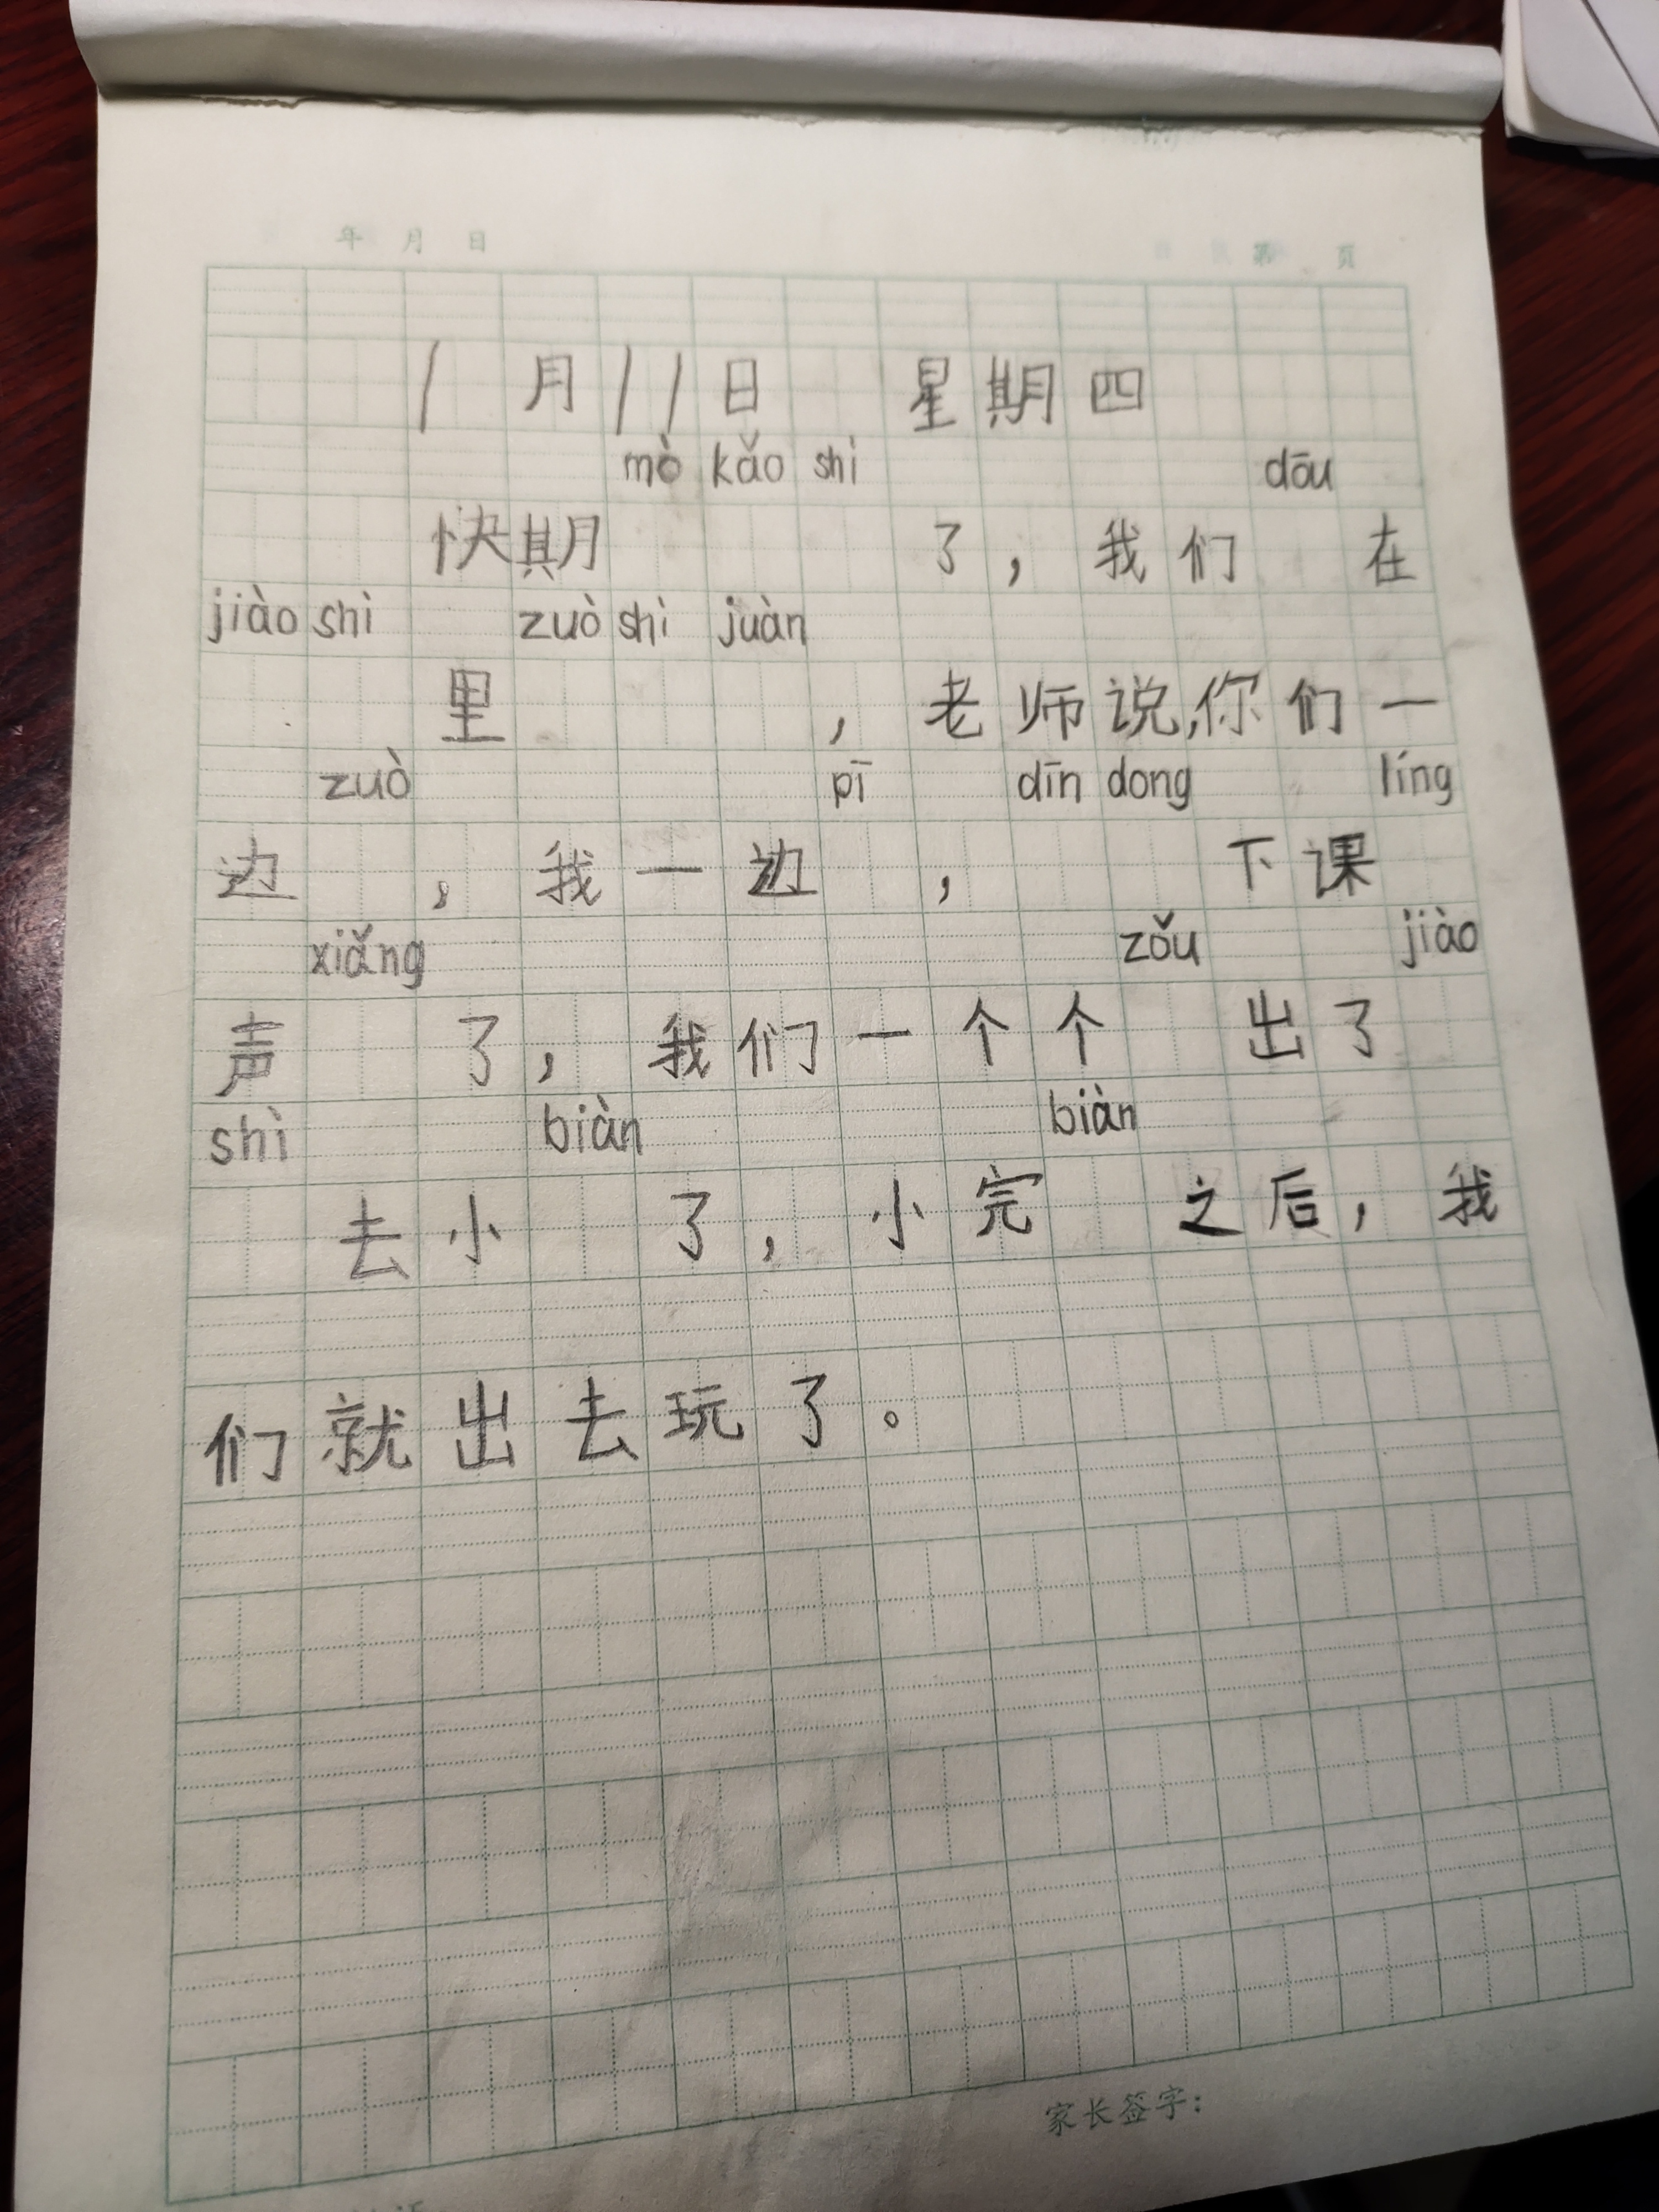 年 月 日 第 页
1月11日 星期四
mò kǎo shì dōu
快期 了，我们 在
jiào shì zuò shì juàn
里 ，老师说，你们一
zuò pī dīn dong líng
边 ，我一边 ， 下课
xiǎng zǒu jiào
声 了，我们一个个 出了
shì biàn biàn
去小 了，小完 之后，我
们就出去玩了。
家长签字：